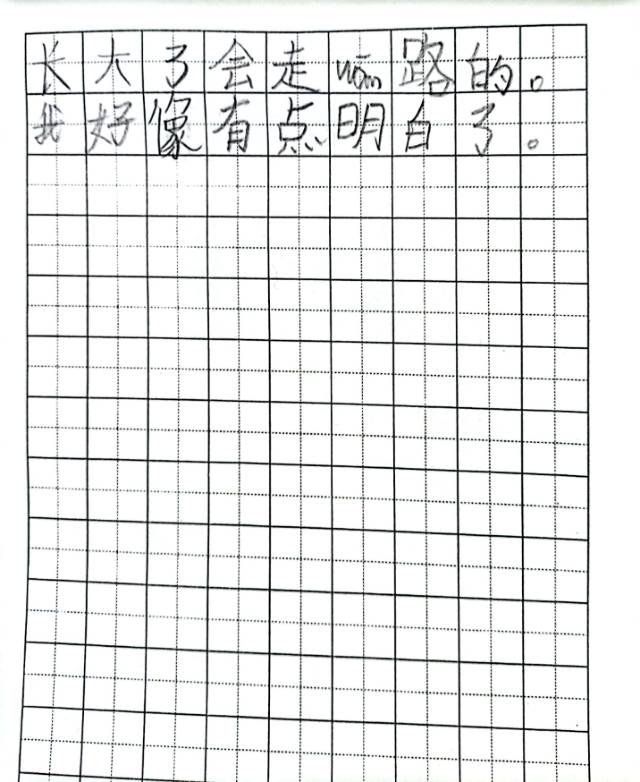 长大了会走wān路的。
我好像有点明白了。